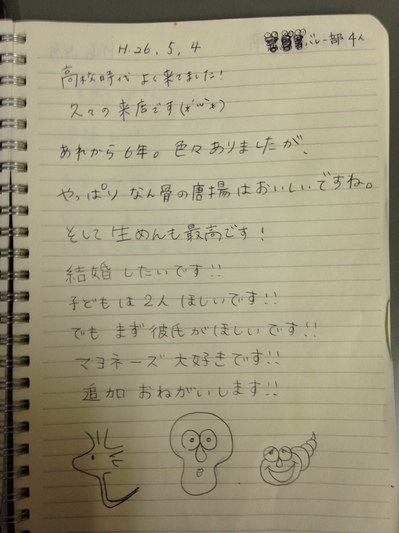 H.26.5.4
バレー部 4人
高校時代 よく来てました!
久々の来店です(*´˘`*)
あれから6年。色々ありましたが、
やっぱり なん骨の唐揚はおいしいですね。
そして 生めんも最高です!
結婚 したいです!!
子どもは 2人 ほしいです!!
でも まず彼氏がほしいです!!
マヨネーズ 大好きです!!
追加 おねがいします!!